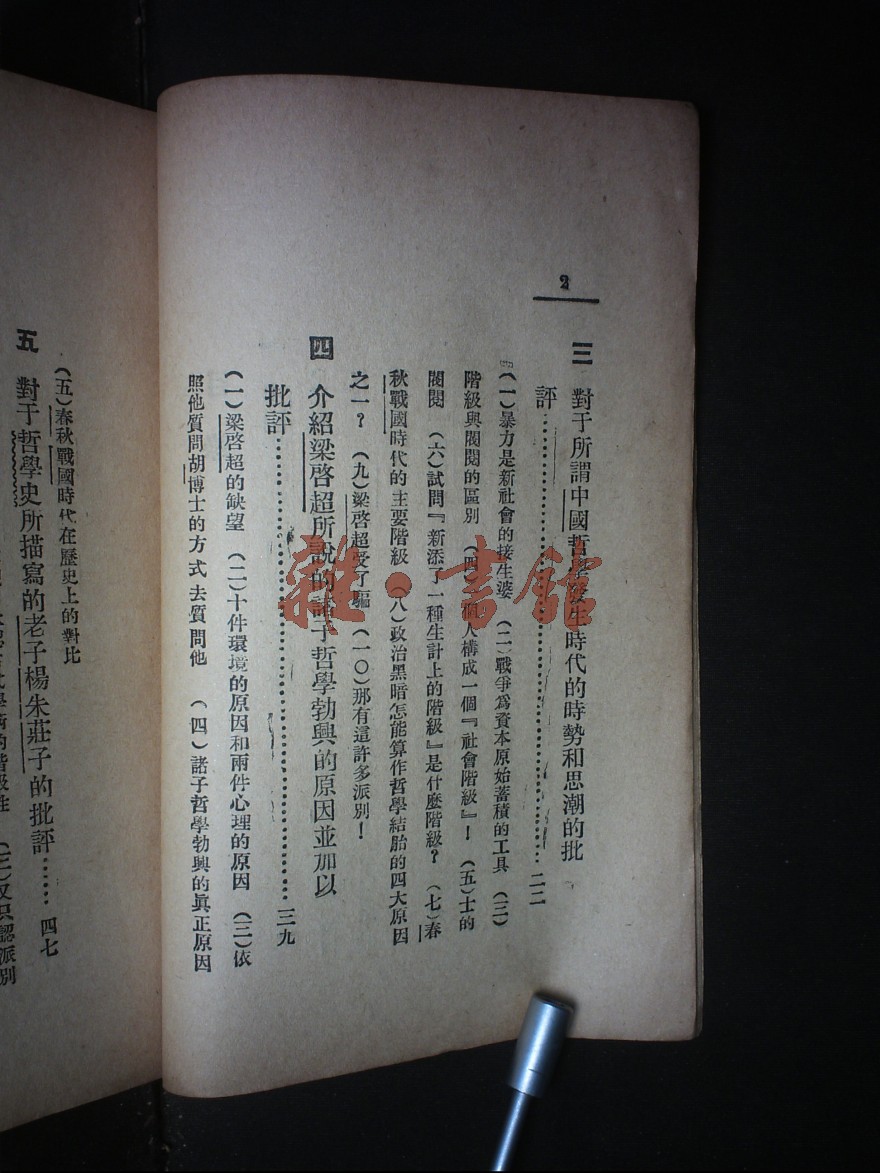 2
三 對于所謂中國哲學發生時代的時勢和思潮的批
評……二二
(一)暴力是新社會的接生婆 (二)戰爭爲資本原始蓄積的工具 (三)
階級與閥閱的區別 (四)個人構成一個『社會階級』！ (五)士的
閥閱 (六)試問『新添了一種生計上的階級』是什麽階級？ (七)春
秋戰國時代的主要階級 (八)政治黑暗怎能算作哲學結胎的四大原因
之一？ (九)梁啓超受了騙 (一〇)那有這許多派別！
四 介紹梁啓超所說的諸子哲學勃興的原因並加以
批評……三九
(一)梁啓超的缺望 (二)十件環境的原因和兩件心理的原因 (三)依
照他質問胡博士的方式去質問他 (四)諸子哲學勃興的眞正原因
(五)春秋戰國時代在歷史上的對比
五 對于哲學史所描寫的老子楊朱莊子的批評……四七
學術的階級性 (二)又只認派別
雜·書館